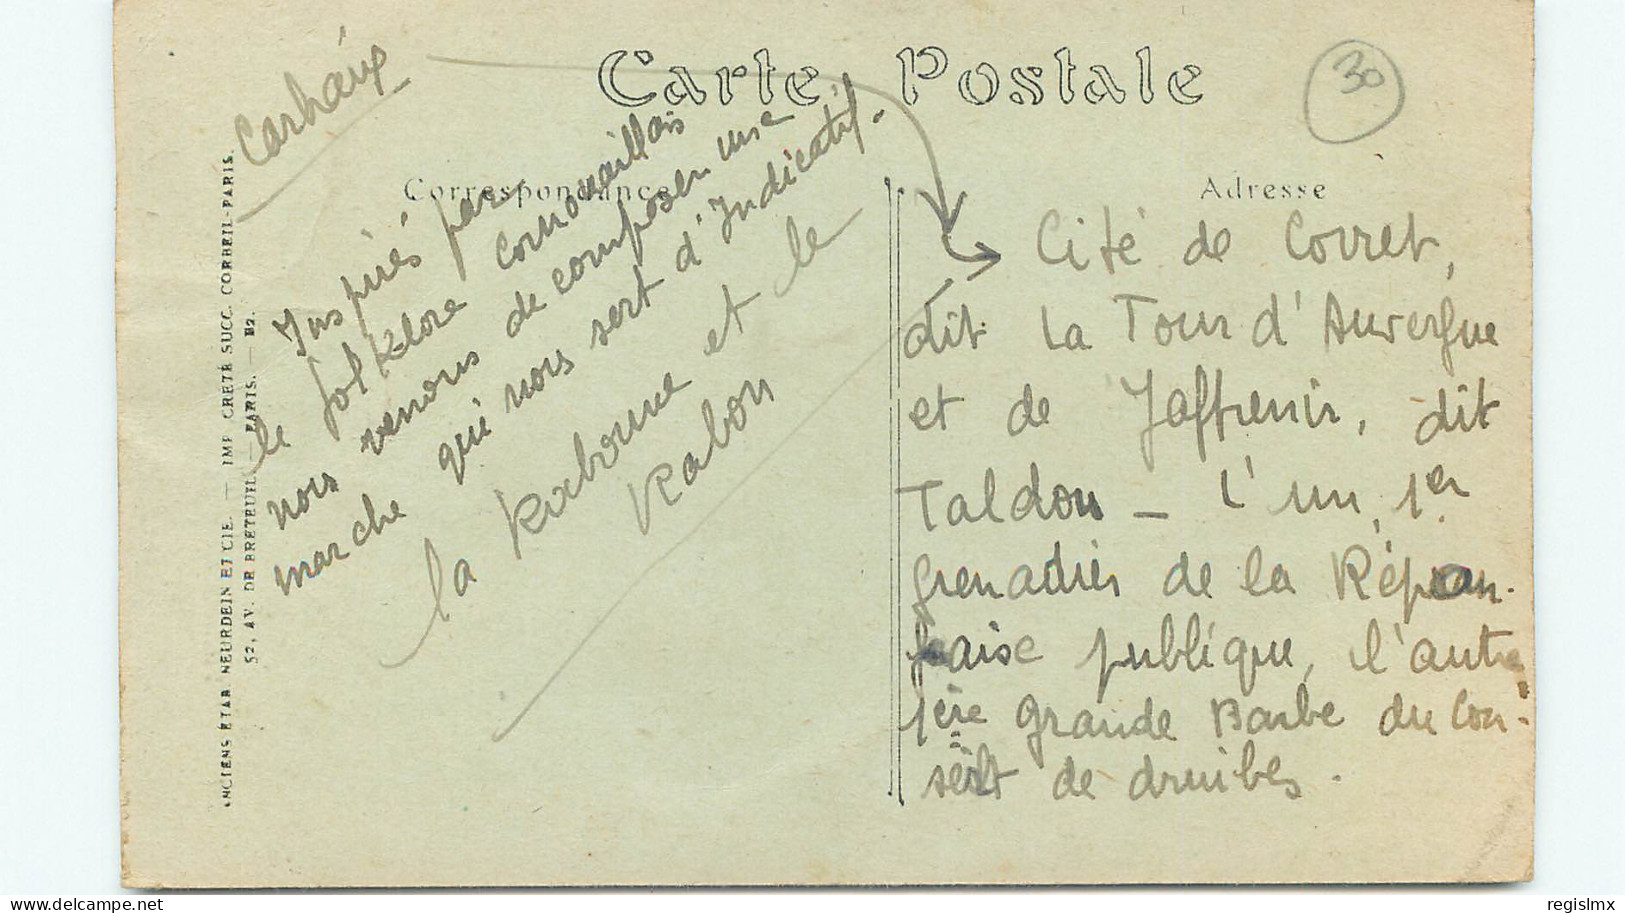 Carte Postale
30
Correspondance
Adresse
Carhaix
Inspirés par
le folklore cornouaillais
nous venons de composer une
marche qui nous sert d'Indicatif.
la Kabonne et le
Kabon
Cité de Corret,
dit La Tour d'Auvergne
et de Jaffrenir, dit
Taldou – L'un, 1er
grenadier de la Répran-
çaise publique, l'autre
1ère grande Barbe du Con-
seilt de druibes.
ANCIENS ÉTAB. NEURDEIN ET CIE. — IMP. CRÉTÉ SUCC. CORBEIL-PARIS.
52, AV. DE BRETEUIL — PARIS. —
www.delcampe.net
regislmx